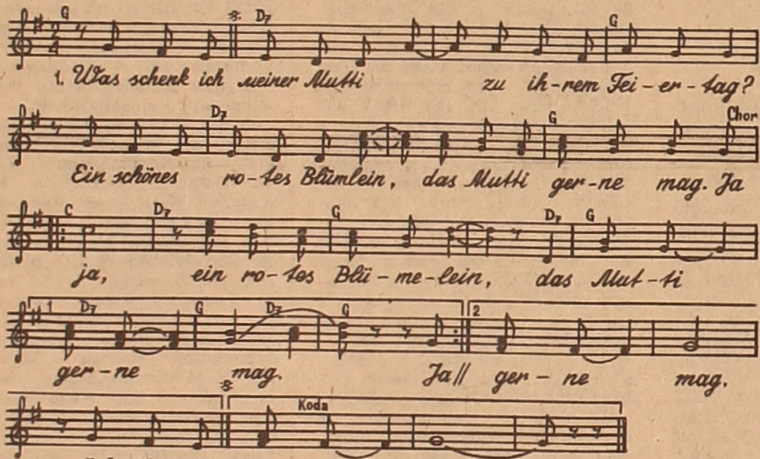 G D7 G
1. Was schenk ich meiner Mutti zu ih-rem Fei-er-tag?
D7 G Chor
Ein schönes ro-tes Blümlein, das Mutti ger-ne mag. Ja
C D7 G D7 G
ja, ein ro-tes Blü-me-lein, das Mut-ti
1 D7 G D7 G 2
ger-ne mag. Ja// ger-ne mag.
Koda